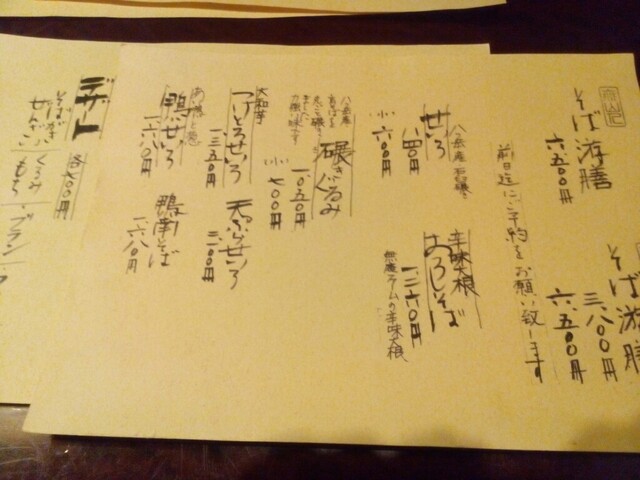 そば游膳
六五〇〇円
そば游膳
三八〇〇円
六五〇〇円
前日迄にご予約をお願い致します
せいろ
八ヶ岳産
八四〇円
小 六〇〇円
辛味大根
おろしそば
一二六〇円
無農ファームの辛味大根
碾きぐるみ
八ヶ岳産
一〇五〇円
小 七〇〇円
大和芋
つけとろせいろ
一三五〇円
天ぷらせいろ
鴨せいろ
鴨南そば
一六八〇円
デザート
各七〇〇円
そばがき
ぜんざい
くるみ
もち